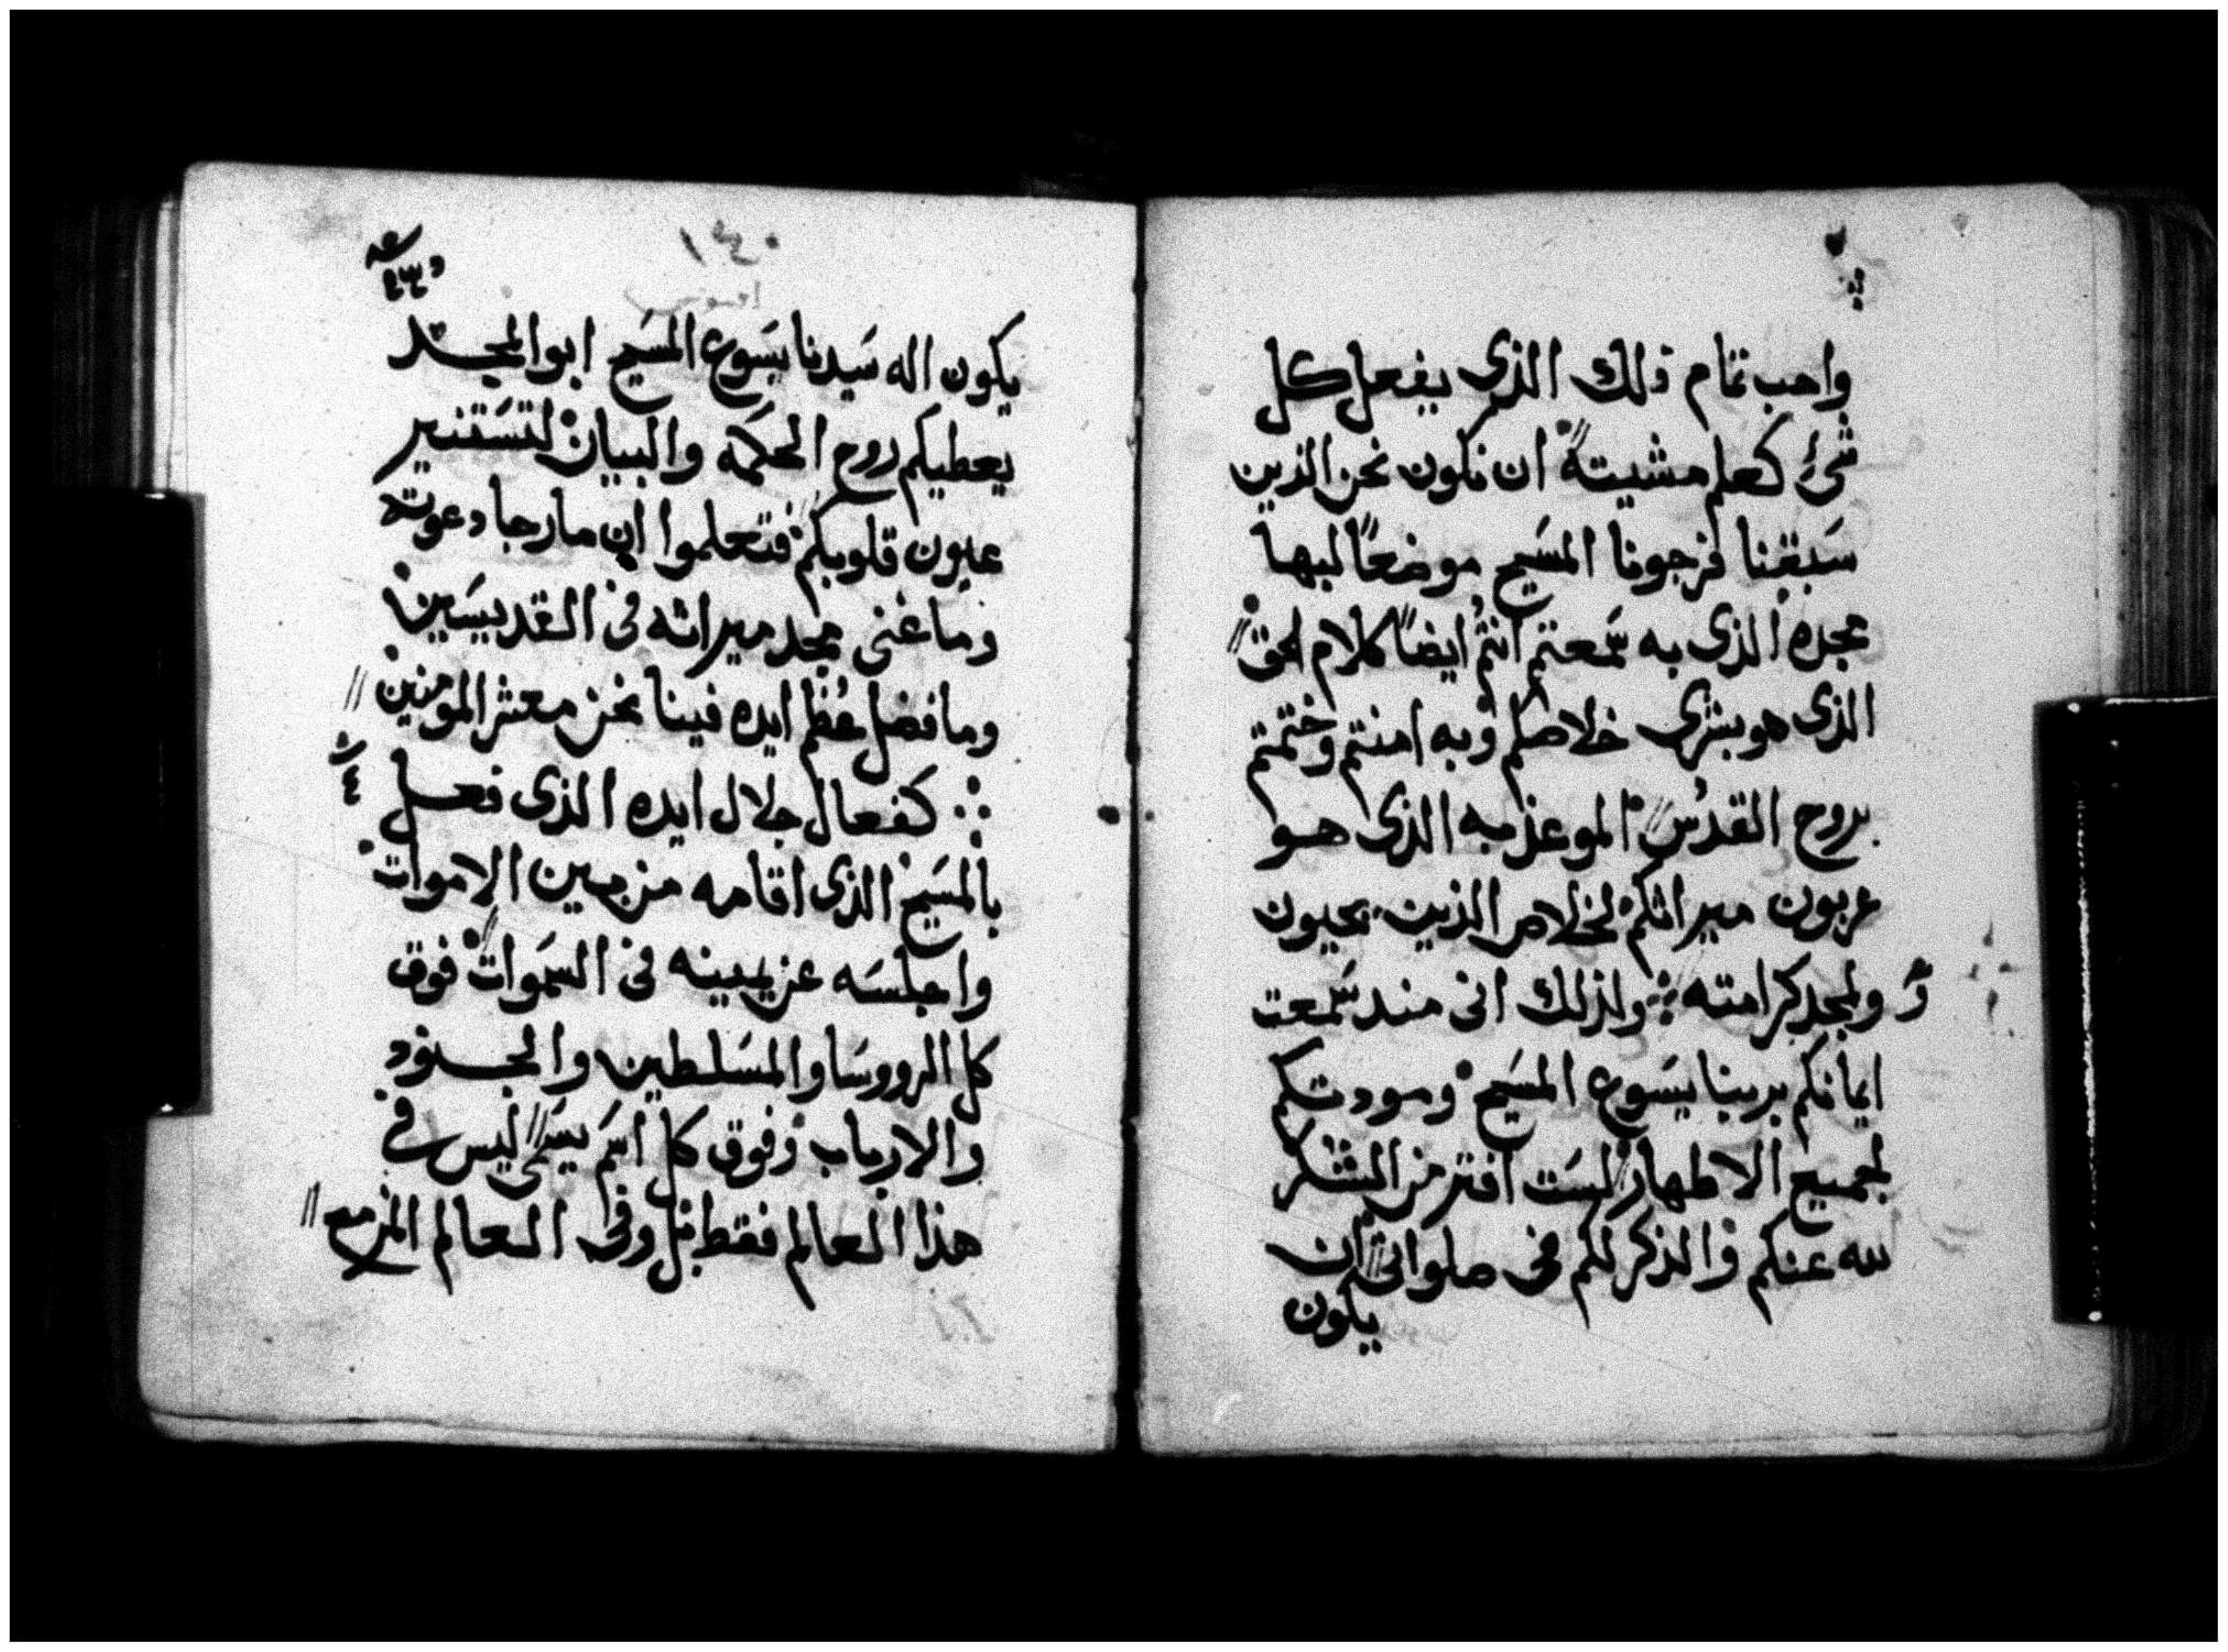 واحب تمام ذلك الذى يفعل كل
شئ كعلم مشيته ان نكون نحن الذين
سَبقنا فرجونا المسَيح موضعًا لبها
مجده الذى به سَمعتم انتم ايضًا كلام الحق
الذى هو بشرى خلاصكم وبه امنتم وختمتم
بروح القدُس الموعذ به الذى هو
عربون ميراثكم لخلاص الذين يحيون
ولمجد كرامته ولذلك انى منذ سَمعت
ايمانكم بربنا يسَوع المسَيح ومودتكم
لجميع الاطهار لسَت افتر من الشكر
لله عنكم والذكر لكم فى صلواتى ان
يكون
يكون اله سَيدنا يسَوع المسَيح ابو المجد
يعطيكم روح الحكمه والبيان لتسَتنير
عيون قلوبكم فتعلموا اين ما رجا دعوته
وما غنى مجد ميراثه فى القديسَين
وما فضل عُظم ايده فينا نحن معشر المومنين
كفعال جلال ايده الذى فعل
بالمسَيح الذى اقامه من بين الاموات
واجلسَه عن يمينه فى السَموات فوق
كل الرووسَا والمسَلطين والجنود
والارباب وفوق كل اسَم يسَمى ليس فى
هذا العالم فقط بل وفى العالم المزمع